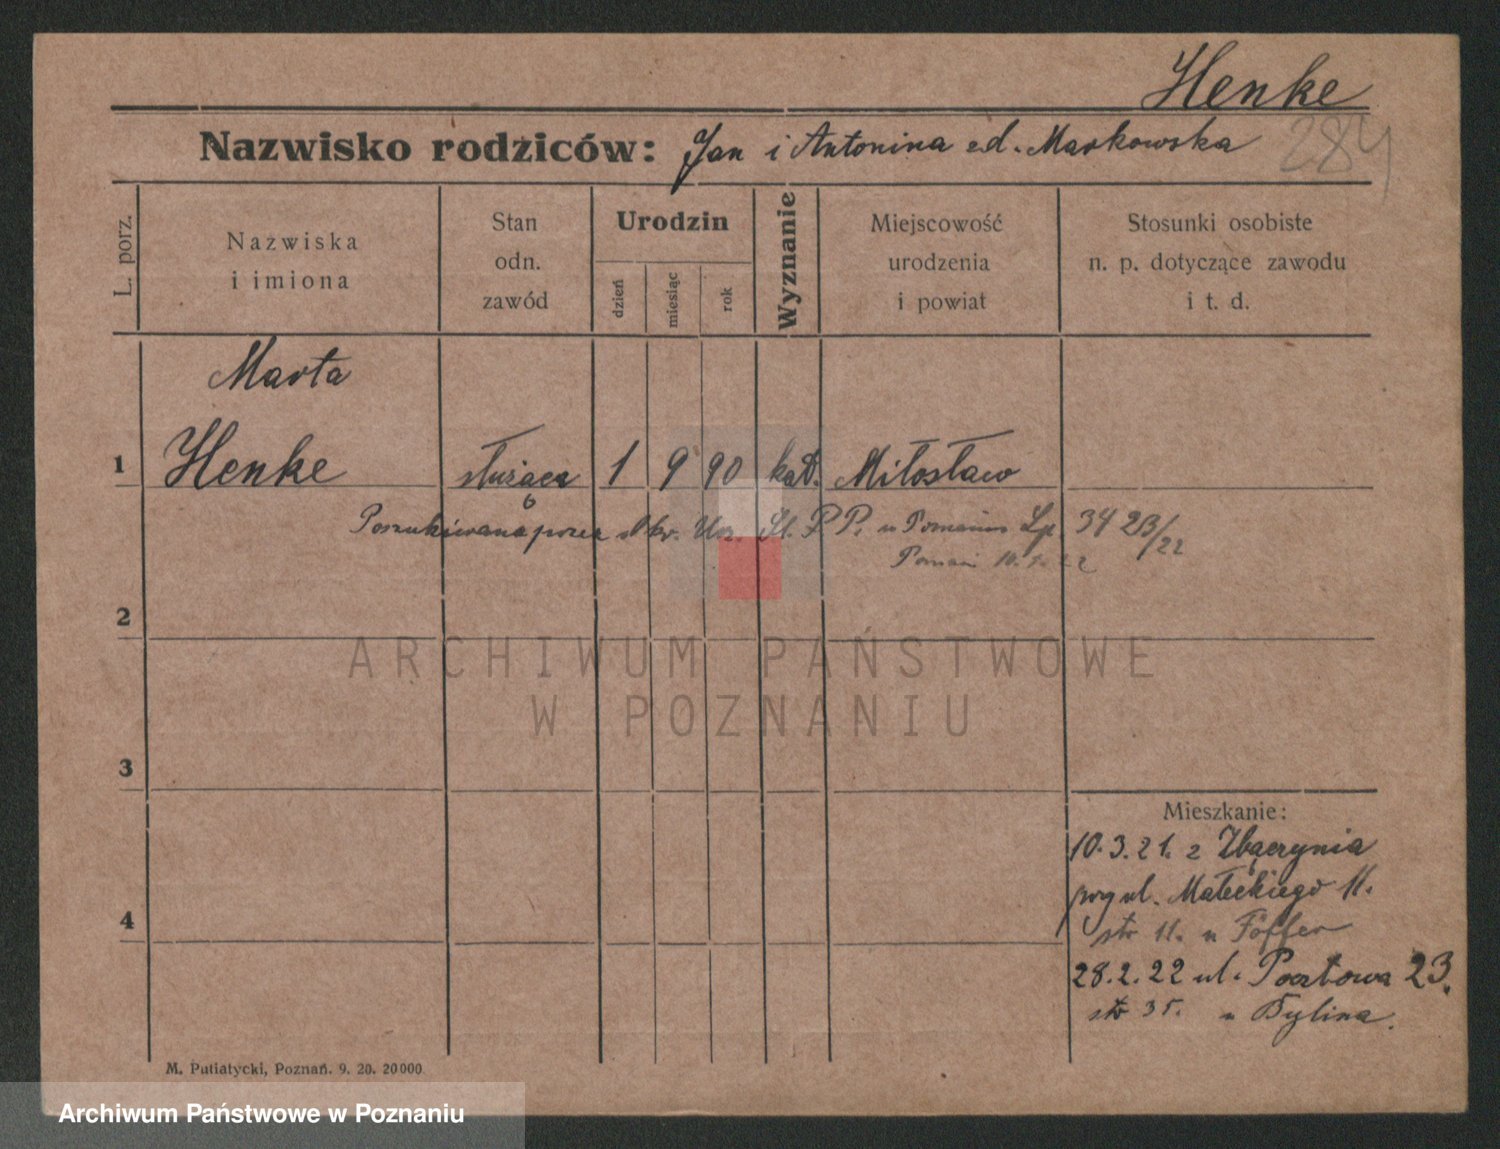 Henke
284
Nazwisko rodziców: Jan i Antonina z d. Markowska
L. porz.
Nazwiska
i imiona
Stan
odn.
zawód
Urodzin
dzień
miesiąc
rok
Wyznanie
Miejscowość
urodzenia
i powiat
Stosunki osobiste
n. p. dotyczące zawodu
i t. d.
Marta
1 Henke służąca 1 9 90 kat. Miłosław
Poszukiwana przez Okr. Urz. Śl. P. P. w Poznaniu Lp 34 23/22
Poznań
2
3
4
Mieszkanie:
10.3.21. z Zbączynia
przy ul. Małeckiego 11.
str 11. u Föffer
28.2.22 ul. Pocztowa 23.
str 35. u Bylina.
M. Putiatycki, Poznań. 9. 20. 20000
ARCHIWUM PAŃSTWOWE
W POZNANIU
Archiwum Państwowe w Poznaniu